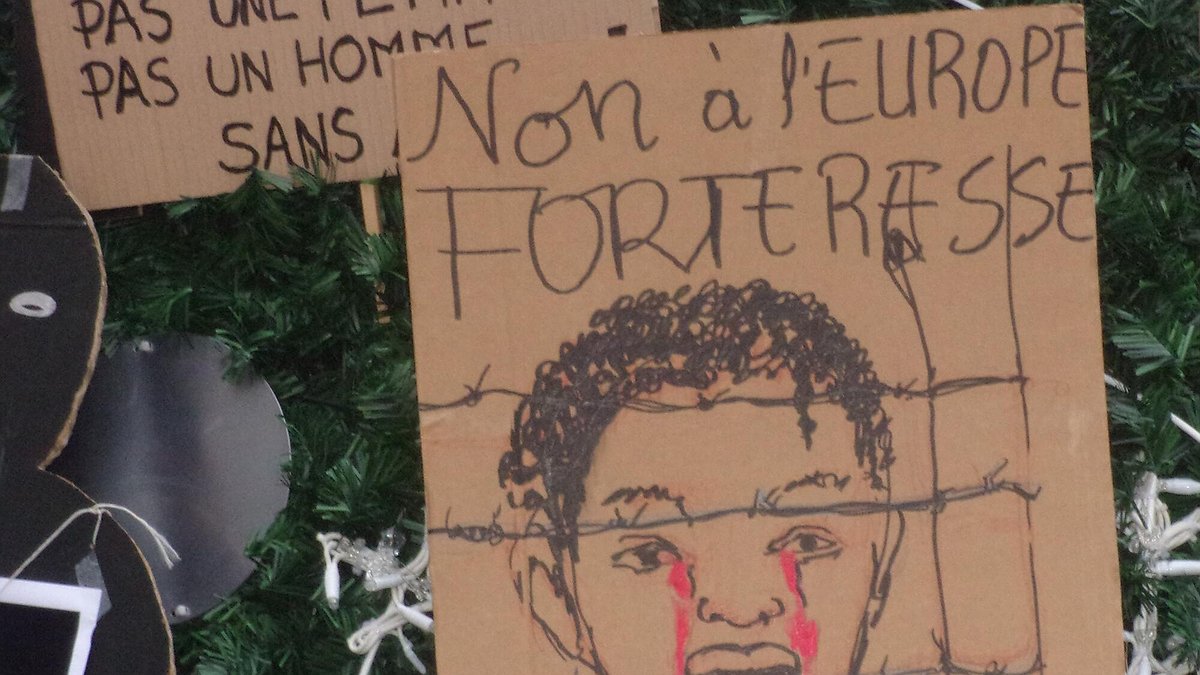 PAS UNE FEMM
PAS UN HOMME
SANS
Non à l'EUROPE
FORTERESSE